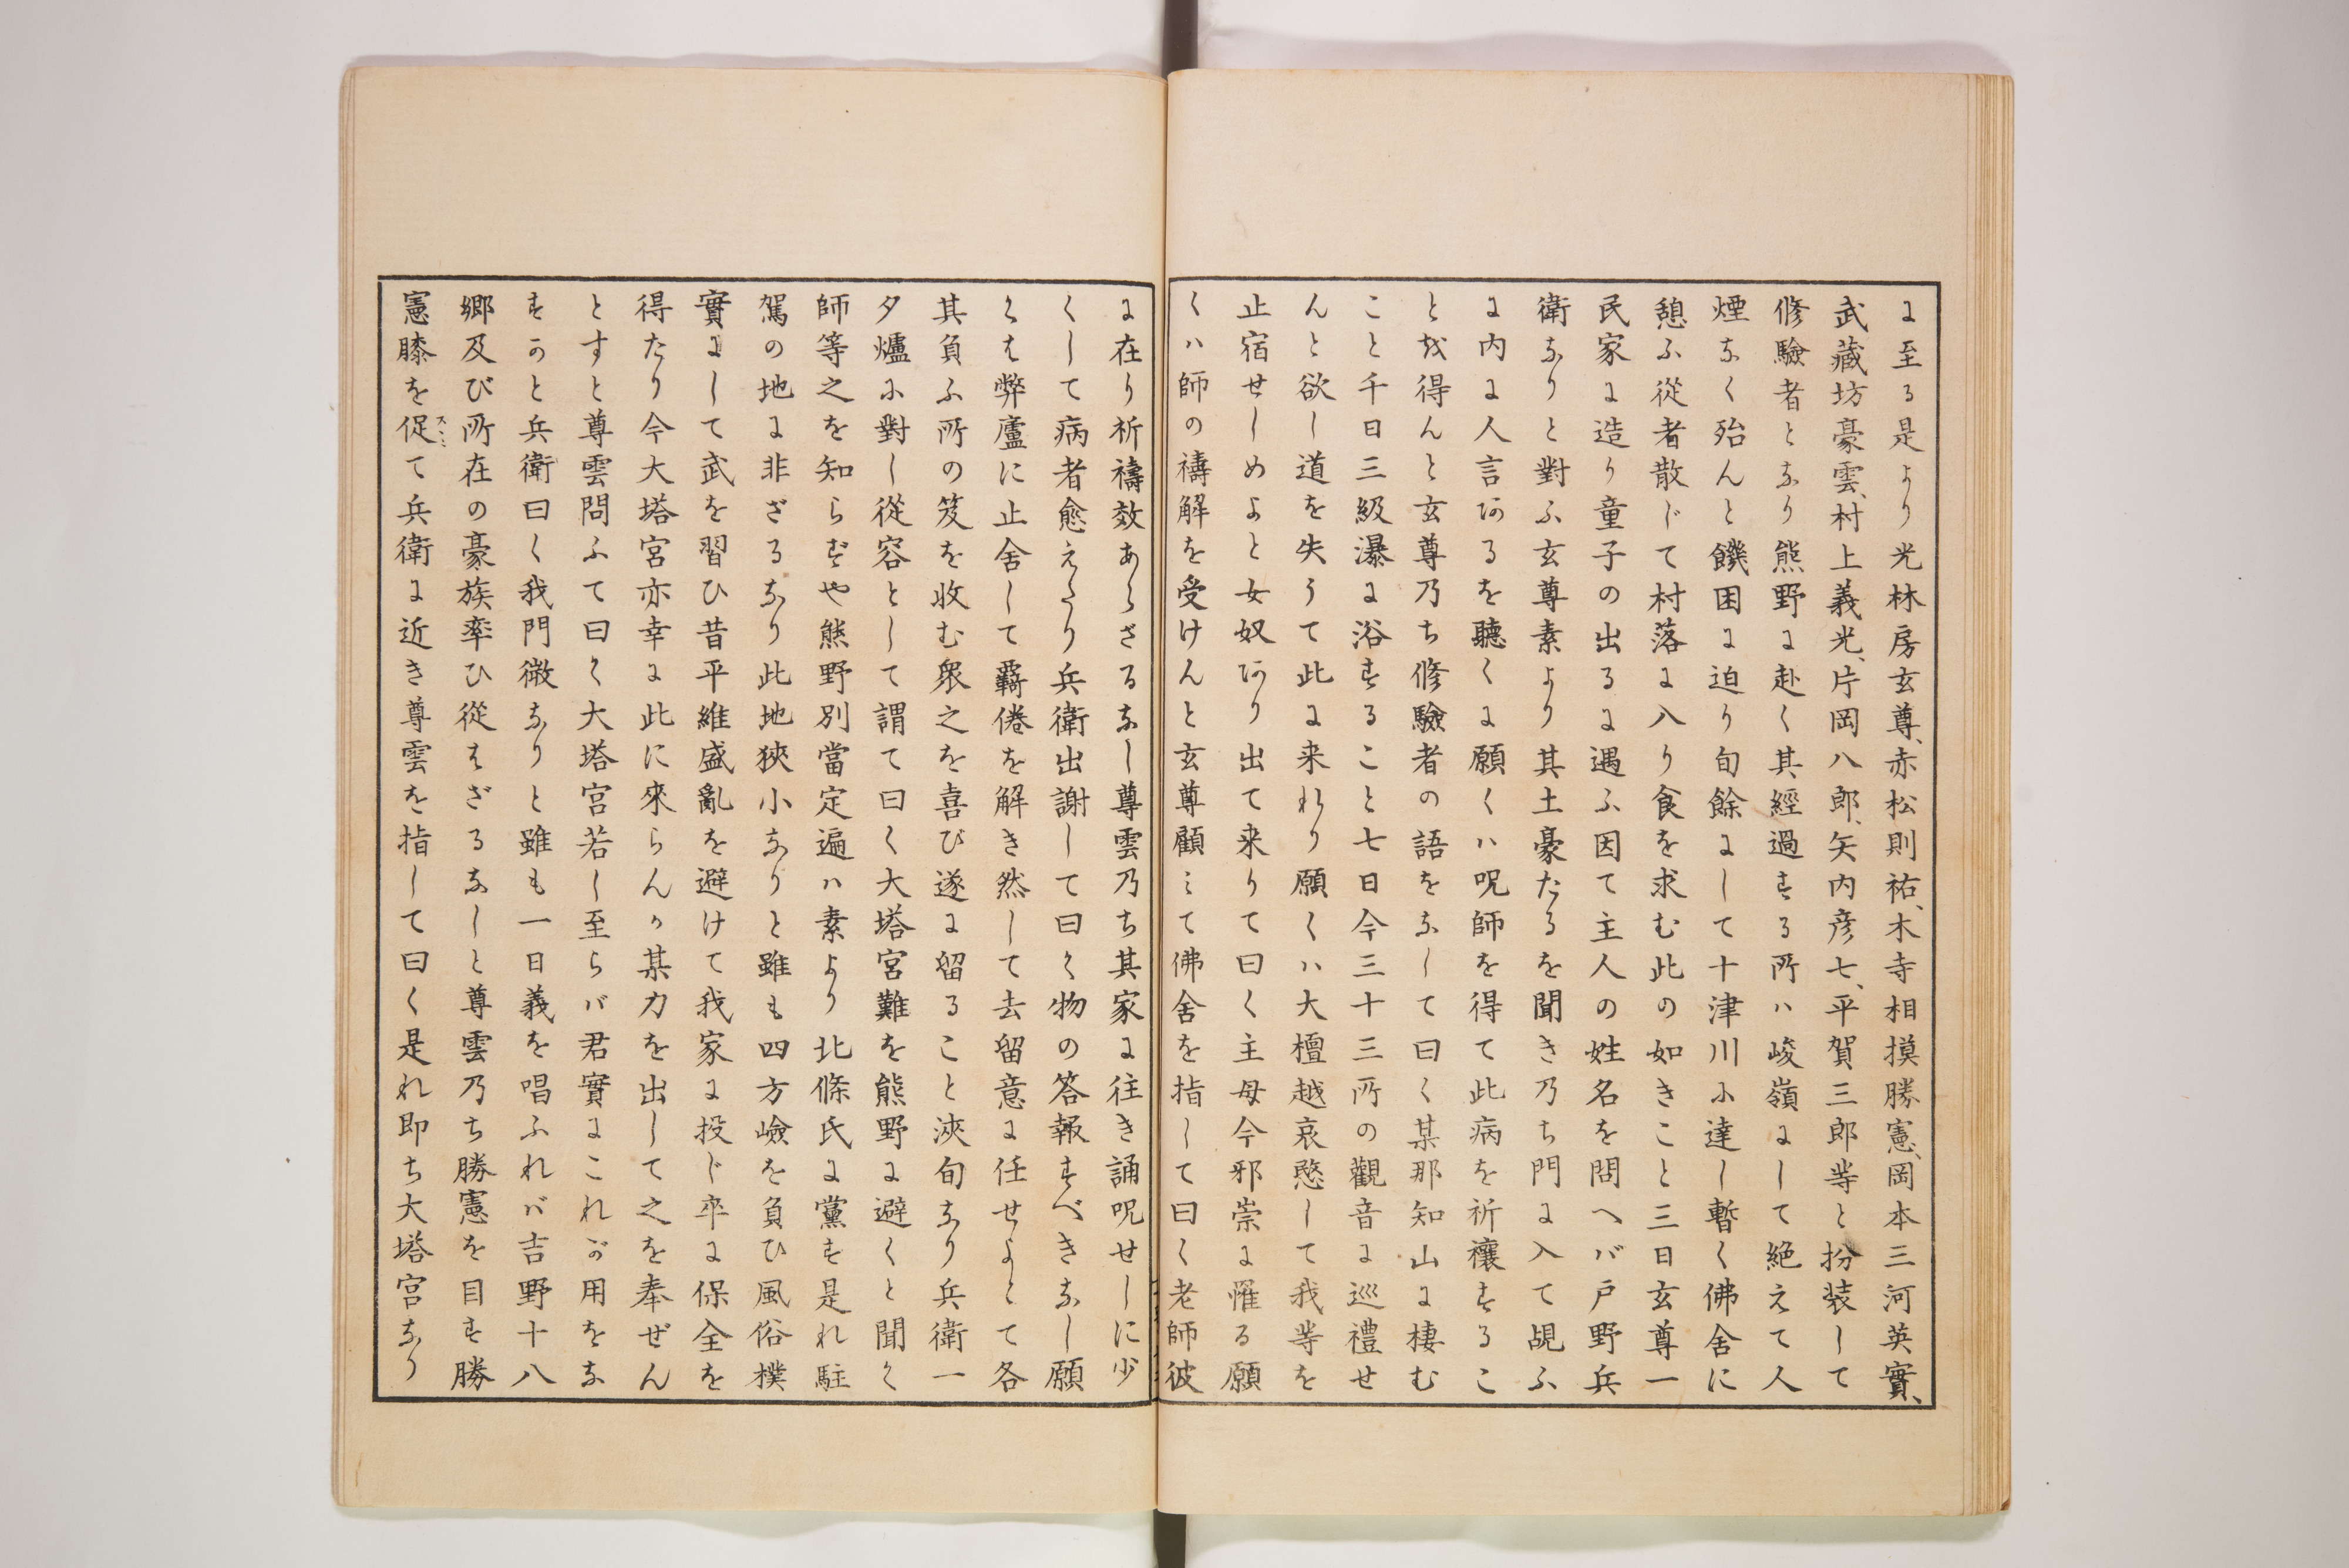 に至る是より光林房玄尊、赤松則祐、木寺相摸勝憲、岡本三河英實、
武藏坊豪雲、村上義光、片岡八郎、矢内彦七、平賀三郎等と扮装して
修驗者となり熊野に赴く其經過する所ハ峻嶺にして絶えて人
煙なく殆んと饑困に迫り旬餘にして十津川に達し暫く佛舍に
憩ふ從者散じて村落に入り食を求む此の如きこと三日玄尊一
民家に造り童子の出るに遇ふ因て主人の姓名を問へバ戸野兵
衛なりと對ふ玄尊素より其土豪たるを聞き乃ち門に入て覘ふ
に内に人言あるを聽くに願くハ呪師を得て此病を祈禳するこ
とを得んと玄尊乃ち修驗者の語をなして曰く某那知山に棲む
こと千日三級瀑に浴すること七日今三十三所の觀音に巡禮せ
んと欲し道を失うて此に来れり願くハ大檀越哀愍して我等を
止宿せしめよと女奴あり出て来りて曰く主母今邪祟に罹る願
くハ師の禱解を受けんと玄尊顧ミて佛舍を指して曰く老師彼
に在り祈禱效あらざるなし尊雲乃ち其家に往き誦呪せしに少
くして病者愈えたり兵衛出謝して曰く物の答報すべきなし願
くは弊廬に止舍して羇倦を解き然して去留意に任せよとて各
其負ふ所の笈を收む衆之を喜び遂に留ること浹旬なり兵衛一
夕爐に對し從容として謂て曰く大塔宮難を熊野に避くと聞く
師等之を知らずや熊野別當定遍ハ素より北條氏に黨す是れ駐
駕の地に非ざるなり此地狹小なりと雖も四方嶮を負ひ風俗樸
實にして武を習ひ昔平維盛亂を避けて我家に投じ卒に保全を
得たり今大塔宮亦幸に此に來らんか某力を出して之を奉ぜん
とすと尊雲問ふて曰く大塔宮若し至らバ君實にこれが用をな
すかと兵衛曰く我門微なりと雖も一日義を唱ふれバ吉野十八
郷及び所在の豪族率ひ從はざるなしと尊雲乃ち勝憲を目す勝
憲膝を促て兵衛に近き尊雲を指して曰く是れ即ち大塔宮なり